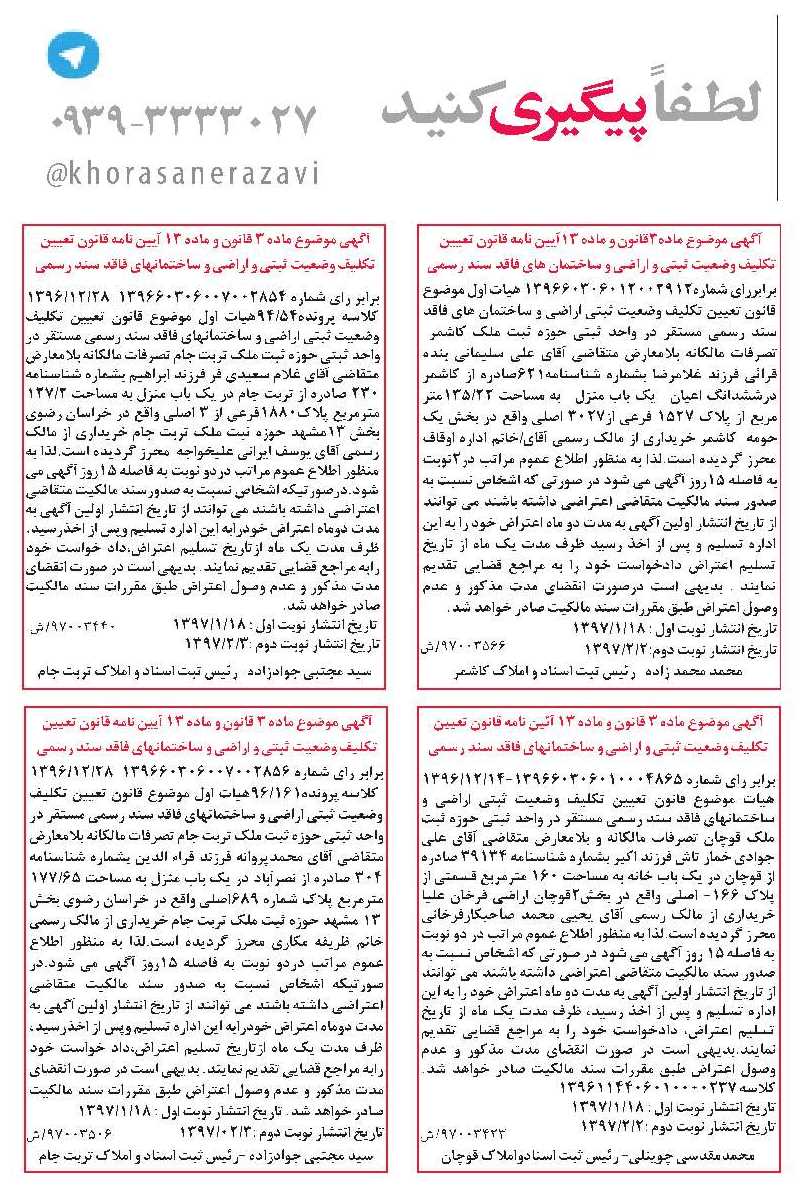 لطفاً پیگیری کنید
۰۹۳۹-۳۳۳۳۰۲۷
@khorasanerazavi
آگهی موضوع ماده۳قانون و ماده ۱۳آیین نامه قانون تعیین
تکلیف وضعیت ثبتی و اراضی و ساختمان های فاقد سند رسمی
برابررای شماره۱۳۹۶۶۰۳۰۶۰۱۲۰۰۲۹۱۲ هیات اول موضوع
قانون تعیین تکلیف وضعیت ثبتی اراضی و ساختمان های فاقد
سند رسمی مستقر در واحد ثبتی حوزه ثبت ملک کاشمر
تصرفات مالکانه بلامعارض متقاضی آقای علی سلیمانی بنده
قرائی فرزند غلامرضا بشماره شناسنامه۶۲۱صادره از کاشمر
درششدانگ اعیان یک باب منزل به مساحت ۱۳۵/۲۲متر
مربع از پلاک ۱۵۲۷ فرعی از۳۰۲۷ اصلی واقع در بخش یک
حومه کاشمر خریداری از مالک رسمی آقای/خانم اداره اوقاف
محرز گردیده است.لذا به منظور اطلاع عموم مراتب در۲نوبت
به فاصله ۱۵روز آگهی می شود در صورتی که اشخاص نسبت به
صدور سند مالکیت متقاضی اعتراضی داشته باشند می توانند
از تاریخ انتشار اولین آگهی به مدت دو ماه اعتراض خود را به این
اداره تسلیم و پس از اخذ رسید ظرف مدت یک ماه از تاریخ
تسلیم اعتراض دادخواست خود را به مراجع قضایی تقدیم
نمایند . بدیهی است درصورت انقضای مدت مذکور و عدم
وصول اعتراض طبق مقررات سند مالکیت صادر خواهد شد.
تاریخ انتشار نوبت اول : ۱۳۹۷/۱/۱۸
تاریخ انتشار نوبت دوم:۱۳۹۷/۲/۲ ۹۷۰۰۳۵۶۶/ش
محمد محمد زاده رئیس ثبت اسناد و املاک کاشمر
آگهی موضوع ماده ۳ قانون و ماده ۱۳ آیین نامه قانون تعیین
تکلیف وضعیت ثبتی و اراضی و ساختمانهای فاقد سند رسمی
برابر رای شماره ۱۳۹۶۶۰۳۰۶۰۰۷۰۰۲۸۵۴ ۱۳۹۶/۱۲/۲۸
کلاسه پرونده۹۴/۵۴هیات اول موضوع قانون تعیین تکلیف
وضعیت ثبتی اراضی و ساختمانهای فاقد سند رسمی مستقر در
واحد ثبتی حوزه ثبت ملک تربت جام تصرفات مالکانه بلامعارض
متقاضی آقای غلام سعیدی فر فرزند ابراهیم بشماره شناسنامه
۲۳۰ صادره از تربت جام در یک باب منزل به مساحت ۱۲۷/۲
مترمربع پلاک۱۸۸۰فرعی از ۳ اصلی واقع در خراسان رضوی
بخش ۱۳مشهد حوزه ثبت ملک تربت جام خریداری از مالک
رسمی آقای یوسف ایرانی علیخواجه محرز گردیده است.لذا به
منظور اطلاع عموم مراتب دردو نوبت به فاصله ۱۵روز آگهی می
شود.درصورتیکه اشخاص نسبت به صدورسند مالکیت متقاضی
اعتراضی داشته باشند می توانند از تاریخ انتشار اولین آگهی به
مدت دوماه اعتراض خودرابه این اداره تسلیم وپس از اخذرسید،
ظرف مدت یک ماه ازتاریخ تسلیم اعتراض،داد خواست خود
رابه مراجع قضایی تقدیم نمایند. بدیهی است در صورت انقضای
مدت مذکور و عدم وصول اعتراض طبق مقررات سند مالکیت
صادر خواهد شد.
تاریخ انتشار نوبت اول : ۱۳۹۷/۱/۱۸ ۹۷۰۰۳۴۴۰/ش
تاریخ انتشار نوبت دوم :۱۳۹۷/۲/۳
سید مجتبی جوادزاده رئیس ثبت اسناد و املاک تربت جام
آگهی موضوع ماده ۳ قانون و ماده ۱۳ آئین نامه قانون تعیین
تکلیف وضعیت ثبتی و اراضی و ساختمانهای فاقد سند رسمی
برابر رای شماره ۱۳۹۶۶۰۳۰۶۰۱۰۰۰۴۸۶۵-۱۳۹۶/۱۲/۱۴
هیات موضوع قانون تعیین تکلیف وضعیت ثبتی اراضی و
ساختمانهای فاقد سند رسمی مستقر در واحد ثبتی حوزه ثبت
ملک قوچان تصرفات مالکانه و بلامعارض متقاضی آقای علی
جوادی خمار تاش فرزند اکبر بشماره شناسنامه ۳۹۱۳۴ صادره
از قوچان در یک باب خانه به مساحت ۱۶۰ مترمربع قسمتی از
پلاک ۱۶۶- اصلی واقع در بخش۲قوچان اراضی فرخان علیا
خریداری از مالک رسمی آقای یحیی محمد صاحبکارفرخانی
محرز گردیده است.لذا به منظور اطلاع عموم مراتب در دو نوبت
به فاصله ۱۵ روز آگهی می شود در صورتی که اشخاص نسبت به
صدور سند مالکیت متقاضی اعتراضی داشته باشند می توانند
از تاریخ انتشار اولین آگهی به مدت دو ماه اعتراض خود را به این
اداره تسلیم و پس از اخذ رسید، ظرف مدت یک ماه از تاریخ
تسلیم اعتراض، دادخواست خود را به مراجع قضایی تقدیم
نمایند.بدیهی است در صورت انقضای مدت مذکور و عدم
وصول اعتراض طبق مقررات سند مالکیت صادر خواهد شد.
کلاسه ۱۳۹۶۱۱۴۴۰۶۰۱۰۰۰۰۲۳۷
تاریخ انتشار نوبت اول : ۱۳۹۷/۱/۱۸
تاریخ انتشار نوبت دوم : ۱۳۹۷/۲/۲ ۹۷۰۰۳۴۲۳/ش
محمدمقدسی چوینلی- رئیس ثبت اسنادواملاک قوچان
آگهی موضوع ماده ۳ قانون و ماده ۱۳ آیین نامه قانون تعیین
تکلیف وضعیت ثبتی و اراضی و ساختمانهای فاقد سند رسمی
برابر رای شماره ۱۳۹۶۶۰۳۰۶۰۰۷۰۰۲۸۵۶ ۱۳۹۶/۱۲/۲۸
کلاسه پرونده۹۶/۱۶۱هیات اول موضوع قانون تعیین تکلیف
وضعیت ثبتی اراضی و ساختمانهای فاقد سند رسمی مستقر در
واحد ثبتی حوزه ثبت ملک تربت جام تصرفات مالکانه بلامعارض
متقاضی آقای محمدپروانه فرزند قراء الدین بشماره شناسنامه
۳۰۴ صادره از نصرآباد در یک باب منزل به مساحت ۱۷۷/۶۵
مترمربع پلاک شماره ۶۸۹اصلی واقع در خراسان رضوی بخش
۱۳ مشهد حوزه ثبت ملک تربت جام خریداری از مالک رسمی
خانم ظریفه مکاری محرز گردیده است.لذا به منظور اطلاع
عموم مراتب دردو نوبت به فاصله ۱۵روز آگهی می شود.در
صورتیکه اشخاص نسبت به صدور سند مالکیت متقاضی
اعتراضی داشته باشند می توانند از تاریخ انتشار اولین آگهی به
مدت دوماه اعتراض خودرابه این اداره تسلیم وپس از اخذرسید،
ظرف مدت یک ماه ازتاریخ تسلیم اعتراض،داد خواست خود
رابه مراجع قضایی تقدیم نمایند. بدیهی است در صورت انقضای
مدت مذکور و عدم وصول اعتراض طبق مقررات سند مالکیت
صادر خواهد شد. تاریخ انتشار نوبت اول : ۱۳۹۷/۱/۱۸
تاریخ انتشار نوبت دوم : ۱۳۹۷/۰۲/۳ ۹۷۰۰۳۵۰۶/ش
سید مجتبی جوادزاده -رئیس ثبت اسناد و املاک تربت جام